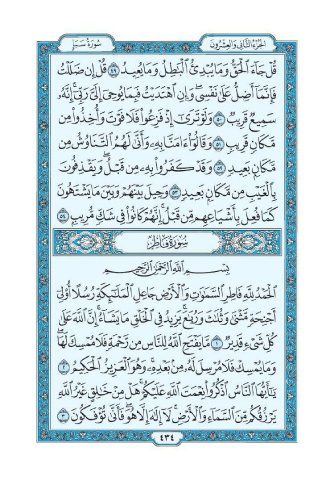 الجزء الثاني والعشرون
سورة سبإ
قُلْ جَاءَ الْحَقُّ وَمَا يُبْدِئُ الْبَاطِلُ وَمَا يُعِيدُ ٤٩ قُلْ إِن ضَلَلْتُ
فَإِنَّمَا أَضِلُّ عَلَىٰ نَفْسِي وَإِنِ اهْتَدَيْتُ فَبِمَا يُوحِي إِلَيَّ رَبِّي إِنَّهُ
سَمِيعٌ قَرِيبٌ ٥٠ وَلَوْ تَرَىٰ إِذْ فَزِعُوا فَلَا فَوْتَ وَأُخِذُوا مِن
مَّكَانٍ قَرِيبٍ ٥١ وَقَالُوا آمَنَّا بِهِ وَأَنَّىٰ لَهُمُ التَّنَاوُشُ مِن
مَّكَانٍ بَعِيدٍ ٥٢ وَقَدْ كَفَرُوا بِهِ مِن قَبْلُ وَيَقْذِفُونَ
بِالْغَيْبِ مِن مَّكَانٍ بَعِيدٍ ٥٣ وَحِيلَ بَيْنَهُمْ وَبَيْنَ مَا يَشْتَهُونَ
كَمَا فُعِلَ بِأَشْيَاعِهِم مِّن قَبْلُ إِنَّهُمْ كَانُوا فِي شَكٍّ مُّرِيبٍ ٥٤
سورة فاطر
بِسْمِ اللَّهِ الرَّحْمَٰنِ الرَّحِيمِ
الْحَمْدُ لِلَّهِ فَاطِرِ السَّمَاوَاتِ وَالْأَرْضِ جَاعِلِ الْمَلَائِكَةِ رُسُلًا أُولِي
أَجْنِحَةٍ مَّثْنَىٰ وَثُلَاثَ وَرُبَاعَ يَزِيدُ فِي الْخَلْقِ مَا يَشَاءُ إِنَّ اللَّهَ عَلَىٰ
كُلِّ شَيْءٍ قَدِيرٌ ١ مَّا يَفْتَحِ اللَّهُ لِلنَّاسِ مِن رَّحْمَةٍ فَلَا مُمْسِكَ لَهَا
وَمَا يُمْسِكْ فَلَا مُرْسِلَ لَهُ مِن بَعْدِهِ وَهُوَ الْعَزِيزُ الْحَكِيمُ ٢
يَا أَيُّهَا النَّاسُ اذْكُرُوا نِعْمَتَ اللَّهِ عَلَيْكُمْ هَلْ مِنْ خَالِقٍ غَيْرُ اللَّهِ
يَرْزُقُكُم مِّنَ السَّمَاءِ وَالْأَرْضِ لَا إِلَٰهَ إِلَّا هُوَ فَأَنَّىٰ تُؤْفَكُونَ ٣
٤٣٤